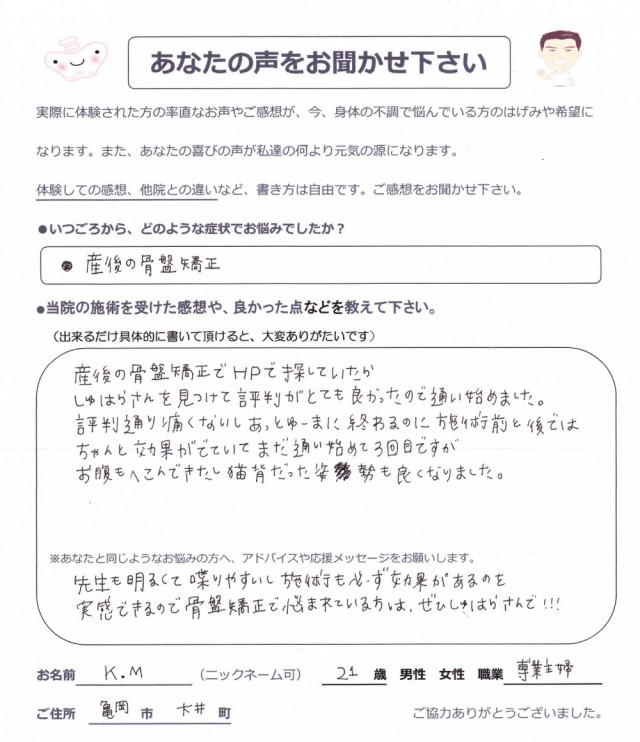 あなたの声をお聞かせ下さい
実際に体験された方の率直なお声やご感想が、今、身体の不調で悩んでいる方のはげみや希望に
なります。また、あなたの喜びの声が私達の何より元気の源になります。
体験しての感想、他院との違いなど、書き方は自由です。ご感想をお聞かせ下さい。
●いつごろから、どのような症状でお悩みでしたか？
● 産後の骨盤矯正
●当院の施術を受けた感想や、良かった点などを教えて下さい。
（出来るだけ具体的に書いて頂けると、大変ありがたいです）
産後の骨盤矯正でHPで探していたが
しゅはらさんを見つけて評判がとても良かったので通い始めました。
評判通り痛くないしあっとゆーまに終わるのに施術前と後では
ちゃんと効果がでていてまだ通い始めて3回目ですが
お腹もへこんできたし猫背だった姿勢も良くなりました。
※あなたと同じようなお悩みの方へ、アドバイスや応援メッセージをお願いします。
先生も明るくて喋りやすいし施術も必ず効果があるのを
実感できるので骨盤矯正で悩まれている方は、ぜひしゅはらさんで!!!
お名前 K.M （ニックネーム可） 21 歳 男性 女性 職業 専業主婦
ご住所 亀岡 市 大井 町 ご協力ありがとうございました。